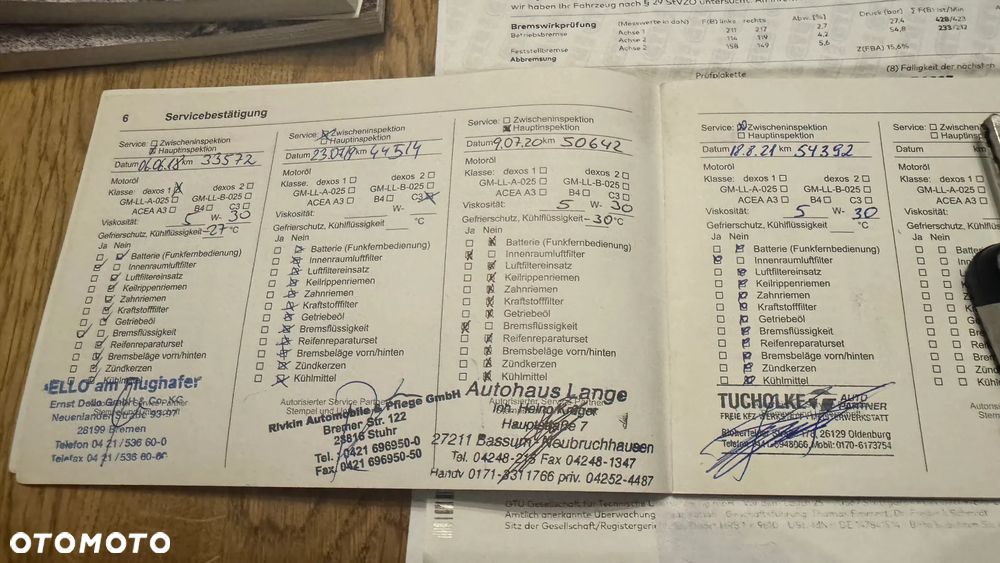 wir haben Ihr Fahrzeug nach § 29 StVZO untersucht.
Bremswirkprüfung (Messwerte in daN) F(B) links rechts Abw. [%] Druck (bar) Σ F(B) ist/Min
Betriebsbremse Achse 1 211 217 2,7 27,4 428/423
Achse 2 114 119 4,2 54,8 233/212
Feststellbremse Achse 2 158 149 5,6
Abbremsung Z(FBA) 15,6%
Prüfplakette (8) Fälligkeit der nächsten
6 Servicebestätigung
Service: Zwischeninspektion
Hauptinspektion
Datum 06.06.18 km 33572
Motoröl
Klasse: dexos 1 dexos 2
GM-LL-A-025 GM-LL-B-025
ACEA A3 B4 C3
Viskosität: 5 W- 30
Gefrierschutz, Kühlflüssigkeit -27 °C
Ja Nein
Batterie (Funkfernbedienung)
Innenraumluftfilter
Luftfiltereinsatz
Keilrippenriemen
Zahnriemen
Kraftstofffilter
Getriebeöl
Bremsflüssigkeit
Reifenreparaturset
Bremsbeläge vorn/hinten
Zündkerzen
Kühlmittel
ELLO am Flughafer
Ernst Dello GmbH & Co. KG
28199 Bremen
Telefon 04 21/536 60-0
Telefax 04 21/536 60-60
Service: Zwischeninspektion
Hauptinspektion
Datum 23.07.19 km 44514
Motoröl
Klasse: dexos 1 dexos 2
GM-LL-A-025 GM-LL-B-025
ACEA A3 B4 C3
Viskosität: W-
Gefrierschutz, Kühlflüssigkeit °C
Ja Nein
Batterie (Funkfernbedienung)
Innenraumluftfilter
Luftfiltereinsatz
Keilrippenriemen
Zahnriemen
Kraftstofffilter
Getriebeöl
Bremsflüssigkeit
Reifenreparaturset
Bremsbeläge vorn/hinten
Zündkerzen
Kühlmittel
Autorisierter Service Partner
Rivkin Automobile & Pflege GmbH
Bremer Str. 122
28816 Stuhr
Tel.: 0421 696950-0
Fax: 0421 696950-50
Service: Zwischeninspektion
Hauptinspektion
Datum 9.07.20 km 50642
Motoröl
Klasse: dexos 1 dexos 2
GM-LL-A-025 GM-LL-B-025
ACEA A3 B4 C3
Viskosität: 5 W- 30
Gefrierschutz, Kühlflüssigkeit -30 °C
Ja Nein
Batterie (Funkfernbedienung)
Innenraumluftfilter
Luftfiltereinsatz
Keilrippenriemen
Zahnriemen
Kraftstofffilter
Getriebeöl
Bremsflüssigkeit
Reifenreparaturset
Bremsbeläge vorn/hinten
Zündkerzen
Kühlmittel
Autohaus Lange
Inh. Heino Krüger
Hauptstraße 7
27211 Bassum - Neubruchhausen
Tel. 04248-215 Fax 04248-1347
Handy 0171-3311766 priv. 04252-4487
Service: Zwischeninspektion
Hauptinspektion
Datum 18.8.21 km 54392
Motoröl
Klasse: dexos 1 dexos 2
GM-LL-A-025 GM-LL-B-025
ACEA A3 B4 C3
Viskosität: 5 W- 30
Gefrierschutz, Kühlflüssigkeit °C
Ja Nein
Batterie (Funkfernbedienung)
Innenraumluftfilter
Luftfiltereinsatz
Keilrippenriemen
Zahnriemen
Kraftstofffilter
Getriebeöl
Bremsflüssigkeit
Reifenreparaturset
Bremsbeläge vorn/hinten
Zündkerzen
Kühlmittel
TUCHOLKE AUTO PARTNER
26129 Oldenburg
Mobil: 0170-6173754
Service: Zwischeninspektion
Hauptinspektion
Datum km
Motoröl
Klasse: dexos 1
GM-LL-A-025
ACEA A3
Viskosität:
Gefrierschutz, Kühlflüssigkeit
Ja Nein
Batterie (Funk
Innenraumluft
Luftfiltereinsatz
Keilrippenriemen
Zahnriemen
Kraftstofffilter
Getriebeöl
Bremsflüssigkeit
Reifenreparatur
Bremsbeläge
Zündkerzen
Kühlmittel
GTÜ Gesellschaft für Technische
Amtlich anerkannte Überwachung
Sitz der Gesellschaft/Registergeri
OTOMOTO